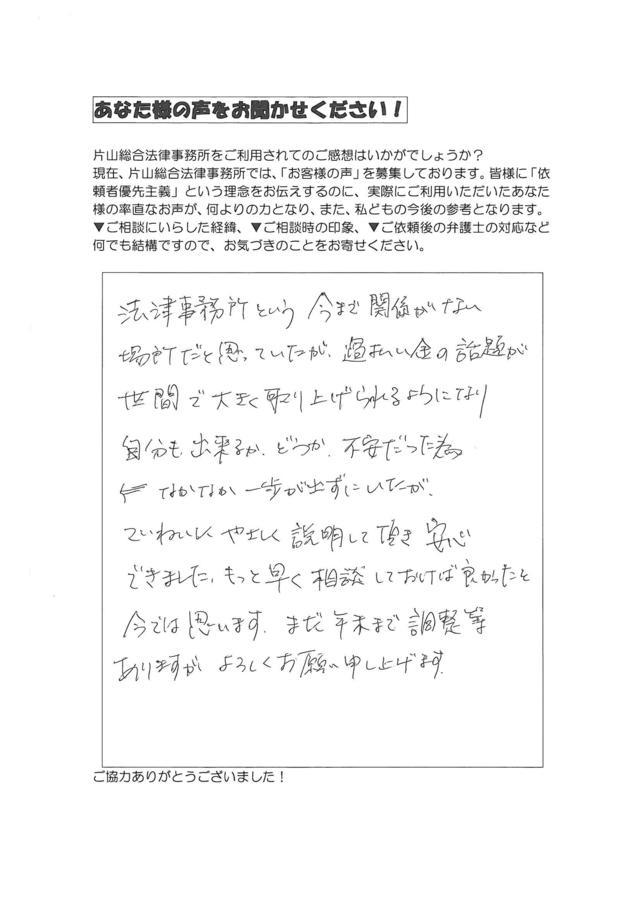 あなた様の声をお聞かせください！
片山総合法律事務所をご利用されてのご感想はいかがでしょうか？
現在、片山総合法律事務所では、「お客様の声」を募集しております。皆様に「依
頼者優先主義」という理念をお伝えするのに、実際にご利用いただいたあなた
様の率直なお声が、何よりの力となり、また、私どもの今後の参考となります。
▼ご相談にいらした経緯、▼ご相談時の印象、▼ご依頼後の弁護士の対応など
何でも結構ですので、お気づきのことをお寄せください。
法律事務所という 今まで関係がない
場所だと思っていたが、過払い金の話題が
世間で大きく取り上げられるようになり
自分も出来るか、どうか、不安だった為
なかなか一歩が出ずにいたが、
ていねいに やさしく 説明して頂き 安心
できました。もっと早く相談しておけば良かったと
今では思います。まだ年末まで調整等
ありますが よろしくお願い申し上げます。
ご協力ありがとうございました！